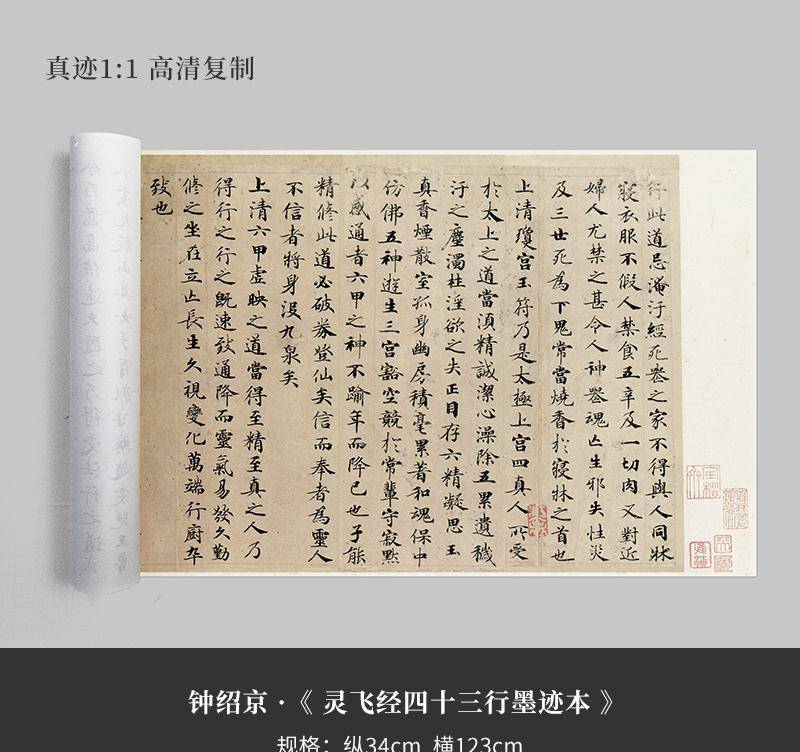 真迹1:1 高清复制
行此道忌淹汙經死喪之家不得與人同牀
寢衣服不假人禁食五辛及一切肉又對近
婦人尤禁之甚令人神喪魂亡生邪失性災
及三世死為下鬼常當燒香於寢牀之首也
上清瓊宮玉符乃是太極上宮四真人所受
於太上之道當須精誠潔心澡除五累遺穢
汙之塵濁杜淫欲之失正目存六精凝思玉
真香煙散室孤身幽房積毫累著和魂保中
仿佛五神遊生三宮豁空競於常輩守寂默
以感通者六甲之神不踰年而降已也子能
精修此道必破券登仙矣信而奉者為靈人
不信者將身沒九泉矣
上清六甲虛映之道當得至精至真之人乃
得行之行之既速致通降而靈氣易發久勤
修之坐在立亡長生久視變化萬端行廚卒
致也
钟绍京·《 灵飞经四十三行墨迹本 》
规格：纵34cm 横123cm